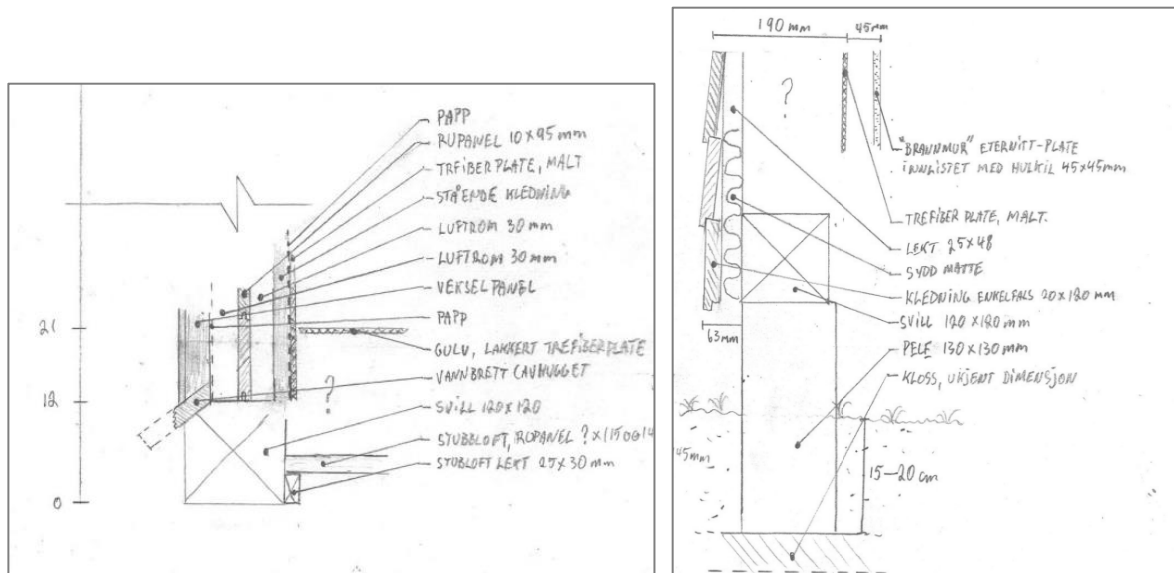 PAPP
RUPANEL 10 x 95 mm
TREFIBERPLATE, MALT
STÅENDE KLEDNING
LUFTROM 30 mm
LUFTROM 30 mm
VEKSELPANEL
PAPP
21
GULV, LAKKERT TREFIBERPLATE
VANNBRETT (AVHUGGET
12
?
SVILL 120 x 120
STUBBLOFT, RUPANEL ? x 115 OG 14
STUBLOFT LEKT 25 x 30 mm
0
190 mm
45 mm
?
"BRANNMUR" ETERNITT-PLATE
INNLISTET MED HULKIL 45x45mm
TREFIBERPLATE, MALT.
LEKT 25x48
SYDD MATTE
KLEDNING ENKELFALS 20x120 mm
SVILL 120 x 120 mm
63 mm
PELE 130 x 130 mm
KLOSS, UKJENT DIMENSJON
45 mm
15-20 cm